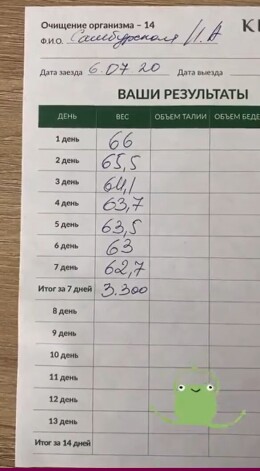 Очищение организма – 14
Ф.И.О. Самбурская Н.А
Дата заезда 6.07 20 Дата выезда
ВАШИ РЕЗУЛЬТАТЫ
ДЕНЬ ВЕС ОБЪЕМ ТАЛИИ ОБЪЕМ БЕДЕ
1 день 66
2 день 65,5
3 день 64,1
4 день 63,7
5 день 63,5
6 день 63
7 день 62,7
Итог за 7 дней 3.300
8 день
9 день
10 день
11 день
12 день
13 день
Итог за 14 дней